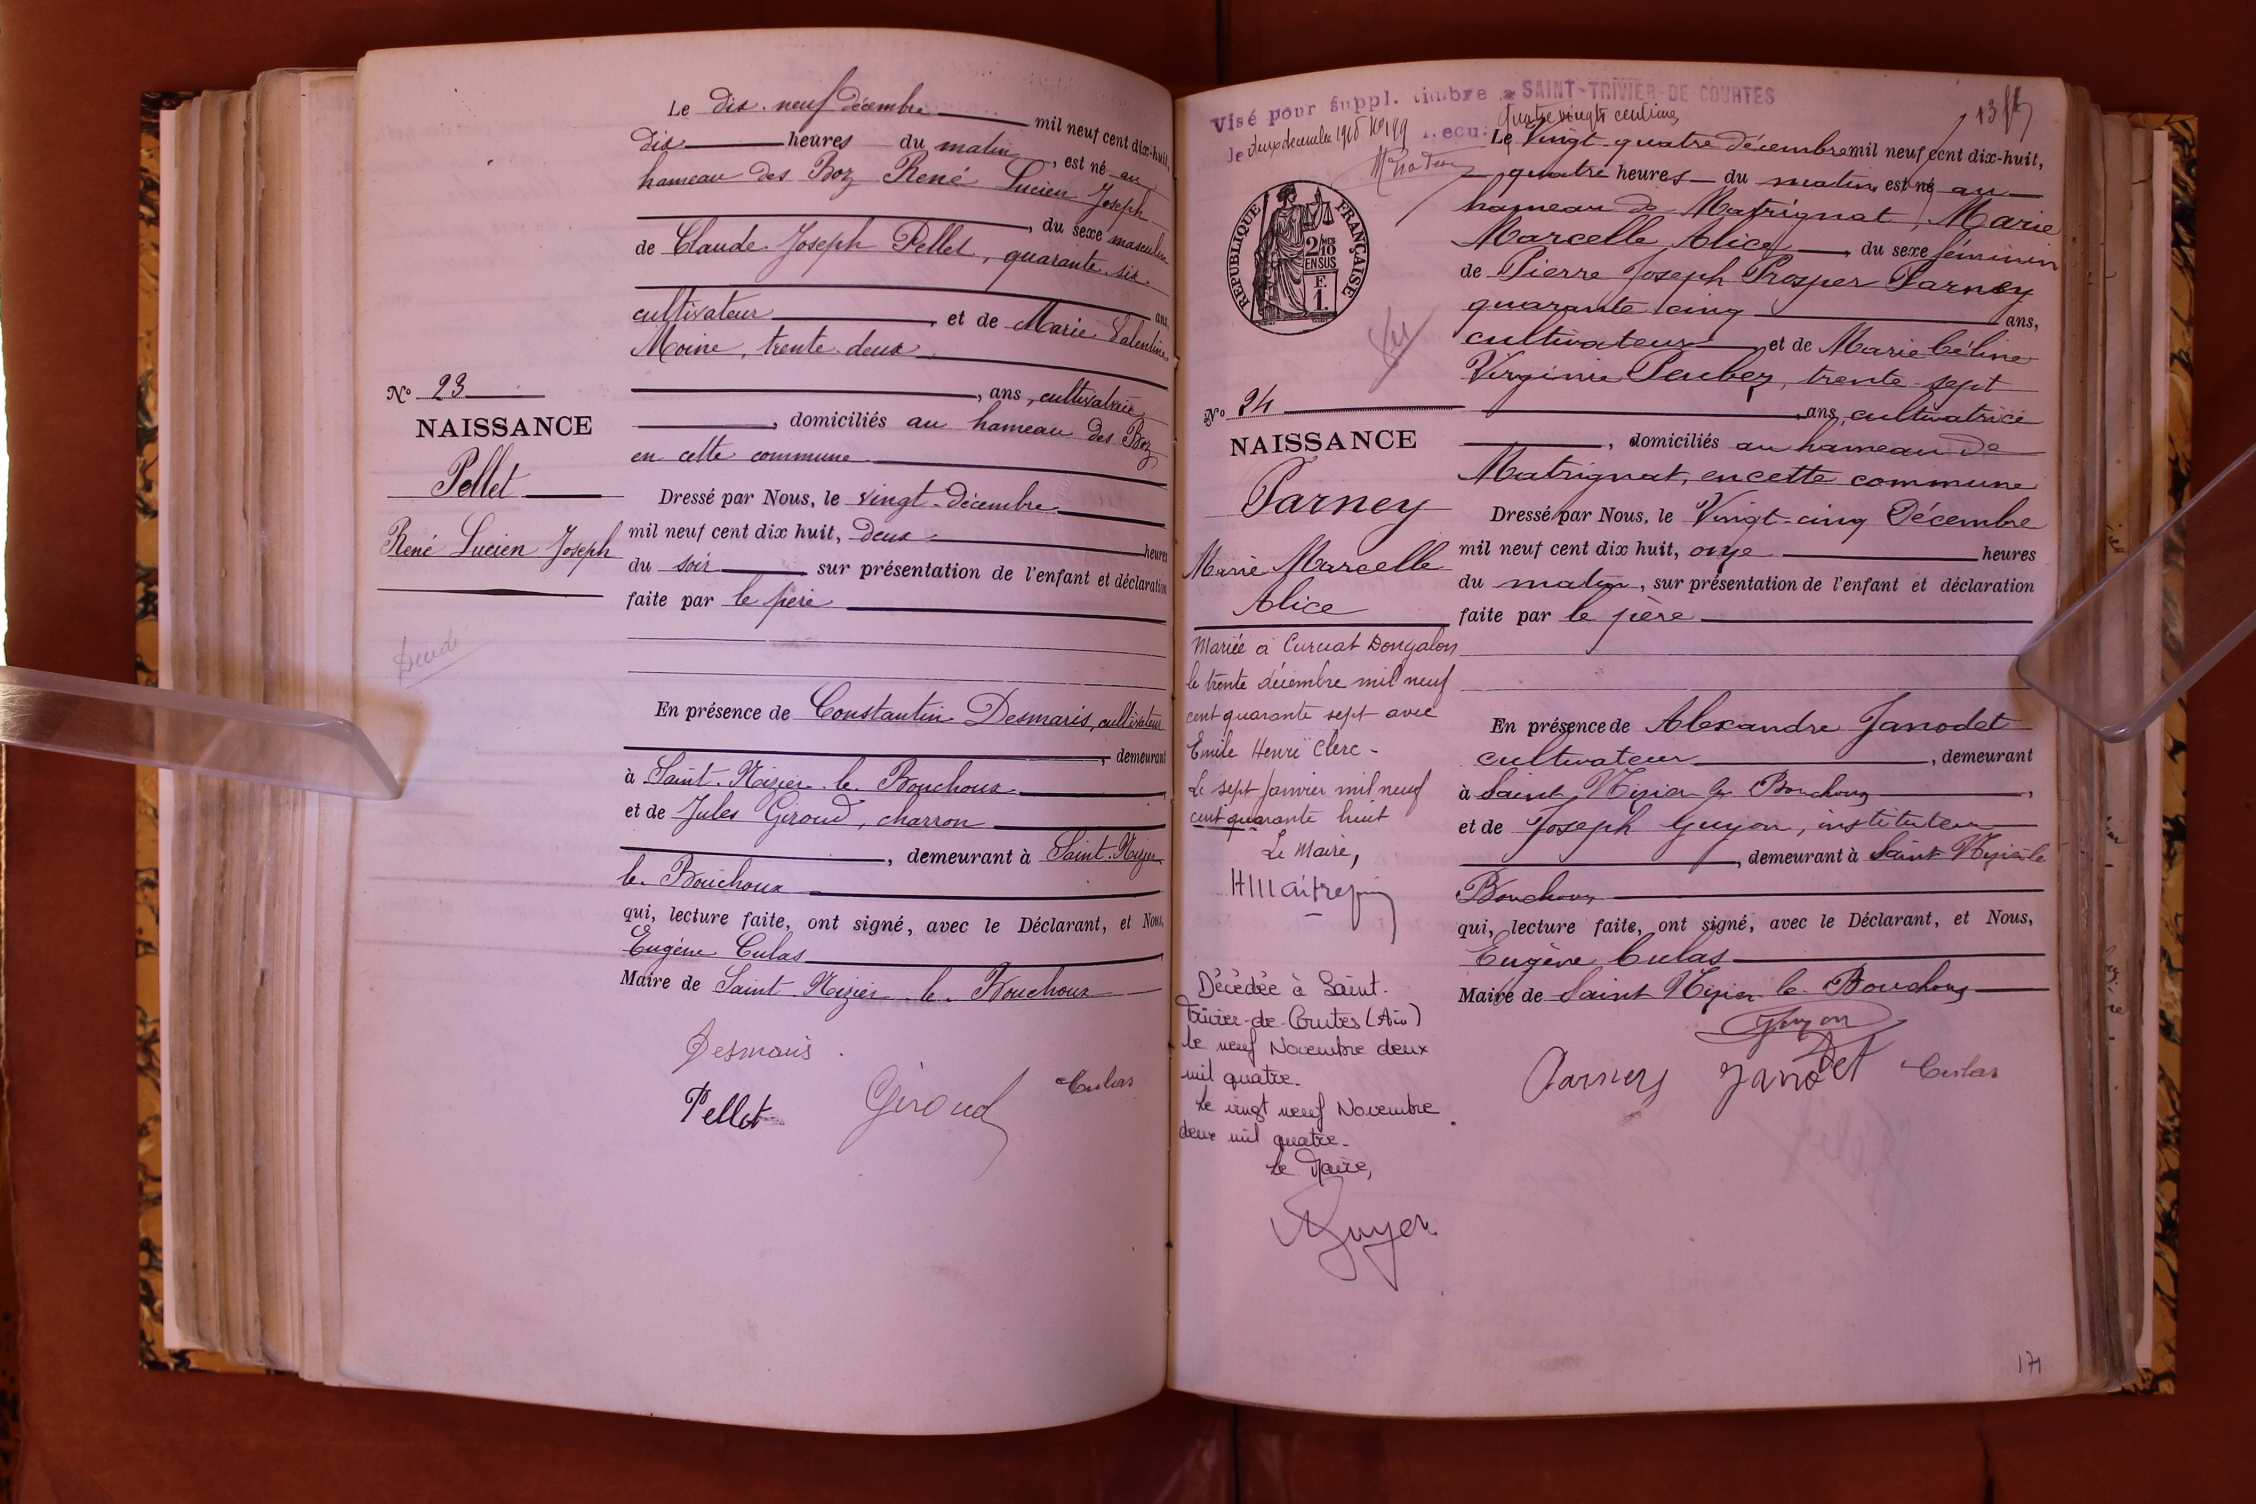 Le dix-neuf décembre mil neuf cent dix-huit,
dix heures du matin, est né au
hameau des Boz René Lucien Joseph
, du sexe masculin
de Claude Joseph Pellet, quarante-six
ans,
cultivateur, et de Marie Valentine
Moine, trente-deux
, ans, cultivatrice
, domiciliés au hameau des Boz
en cette commune
Dressé par Nous, le vingt décembre
mil neuf cent dix huit, deux heures
du soir sur présentation de l'enfant et déclaration
faite par le père
En présence de Constantin Desmaris, cultivateur
, demeurant
à Saint-Nizier-le-Bouchoux,
et de Jules Giroud, charron
, demeurant à Saint-Nizier
le-Bouchoux
qui, lecture faite, ont signé, avec le Déclarant, et Nous,
Eugène Culas,
Maire de Saint-Nizier-le-Bouchoux
Desmaris
Pellet Giroud Culas
N° 23
NAISSANCE
Pellet
René Lucien Joseph
Visé pour suppl. timbre à SAINT-TRIVIER-DE COURTES
le deux décembre 1918 N° 199 quatre vingts centimes
RÉPUBLIQUE FRANÇAISE
2/10
EN SUS
F.
1.
Le Vingt-quatre décembre mil neuf cent dix-huit,
quatre heures du matin est né au
hameau de Matrignat, Marie
Marcelle Alice, du sexe féminin
de Pierre Joseph Prosper Parney
quarante cinq ans,
cultivateur, et de Marie Céline
Virginie Peubez, trente-sept
, ans, cultivatrice
, domiciliés au hameau de
Matrignat, en cette commune
Dressé par Nous, le Vingt-cinq Décembre
mil neuf cent dix huit, onze heures
du matin, sur présentation de l'enfant et déclaration
faite par le père
En présence de Alexandre Janodet
cultivateur, demeurant
à Saint Nizier le Bouchoux,
et de Joseph Guyon, instituteur
, demeurant à Saint Nizier le
Bouchoux
qui, lecture faite, ont signé, avec le Déclarant, et Nous,
Eugène Culas
Maire de Saint Nizier le Bouchoux
Guyon
Parney Janodet Culas
N° 24
NAISSANCE
Parney
Marie Marcelle
Alice
Mariée à Curciat Dongalon
le trente décembre mil neuf
cent quarante sept avec
Emile Henri Clerc -
Le sept Janvier mil neuf
cent quarante huit
Le Maire,
Décédée à Saint-
Trivier-de-Courtes (Ain)
le neuf Novembre deux
mil quatre.
Le vingt neuf Novembre
deux mil quatre.
Le Maire,
171